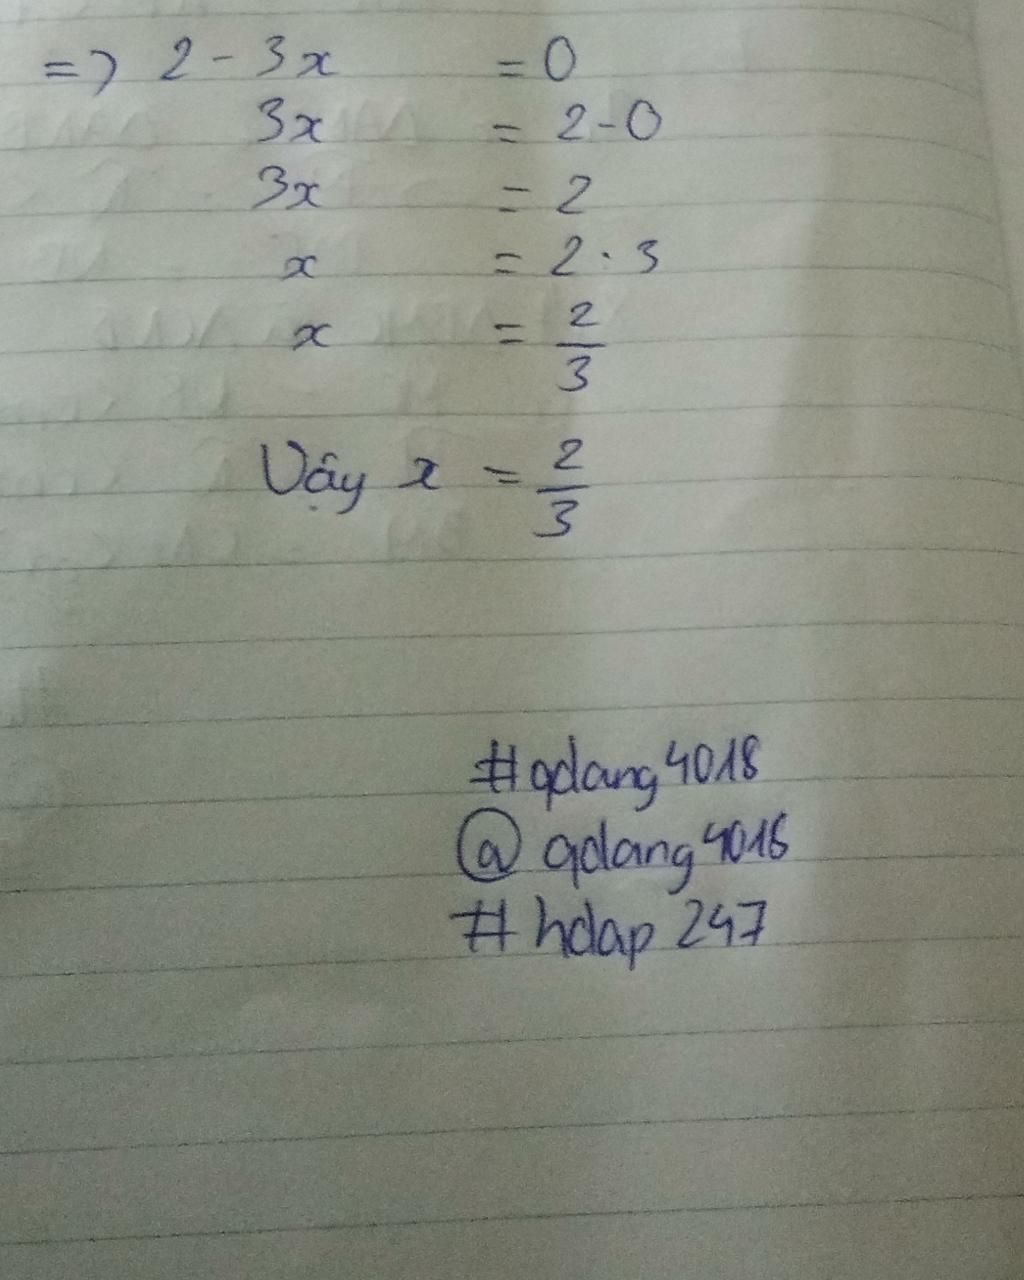 => 2 - 3x = 0
3x = 2 - 0
3x = 2
x = 2 . 3
x = 2/3
Vậy x = 2/3
#qdang4018
@qdang4018
#hdap247